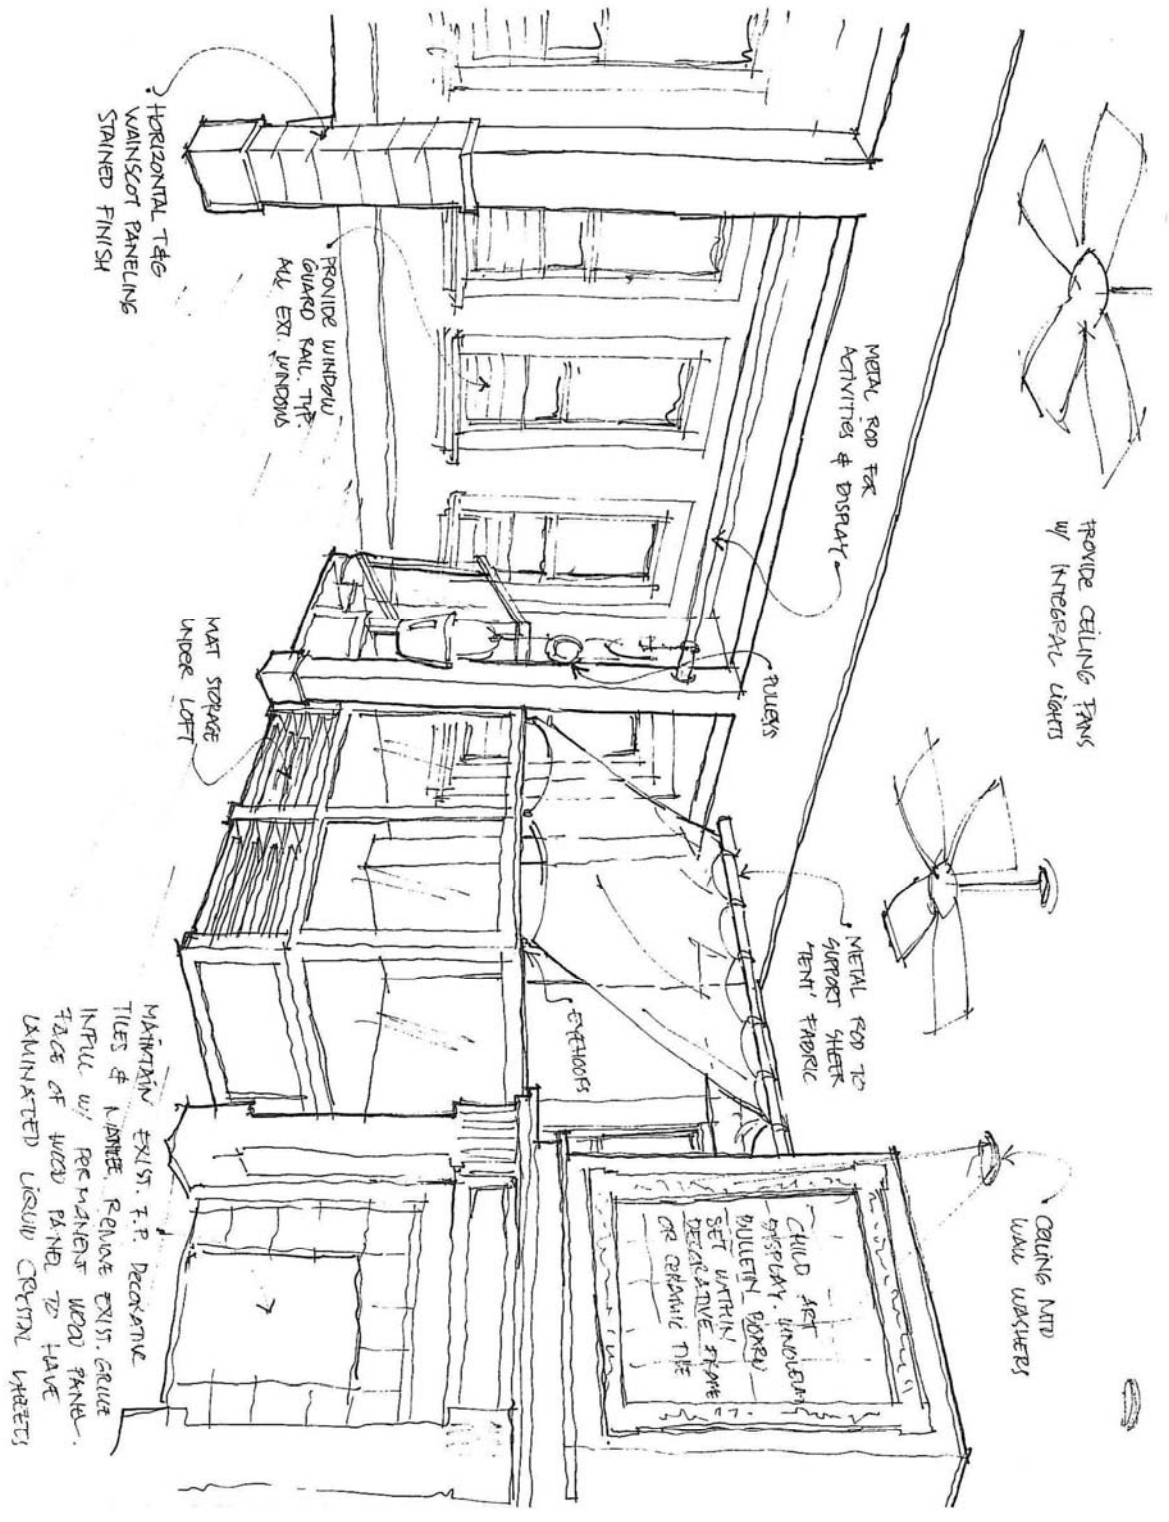 PROVIDE CEILING FANS
W/ INTEGRAL LIGHTS
CEILING MTD
WALL WASHERS
METAL ROD FOR
ACTIVITIES & DISPLAY
METAL ROD TO
SUPPORT SHEER
'TENT' FABRIC
PULLEYS
CHILD ART
DISPLAY. LINOLEUM
BULLETIN BOARD
SET WITHIN
DECORATIVE FRAME
OR CERAMIC TILE
EYEHOOKS
PROVIDE WINDOW
GUARD RAIL. TYP.
ALL EXT. WINDOWS
HORIZONTAL T&G
WAINSCOT PANELING
STAINED FINISH
MAT STORAGE
UNDER LOFT
MAINTAIN EXIST. F.P. DECORATIVE
TILES & MANTEL. REMOVE EXIST. GRILLE
INFILL W/ PERMANENT WOOD PANEL.
FACE OF WOOD PANEL TO HAVE
LAMINATED LIQUID CRYSTAL SHEETS